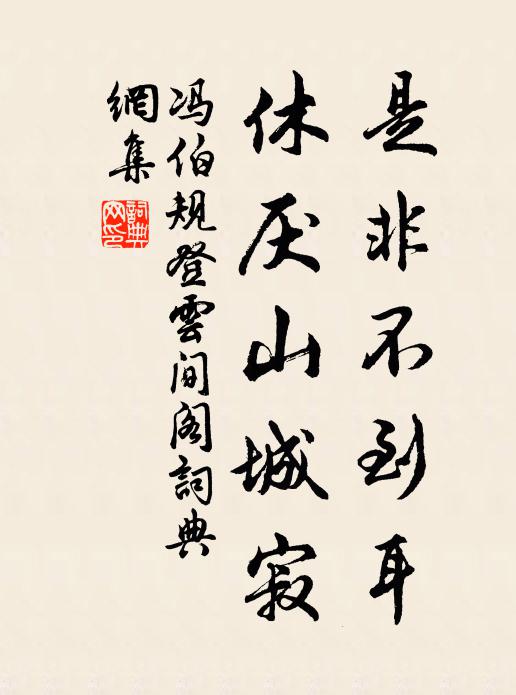 是非不到耳
休厌山城寂
冯伯规登雲间阁詞典
網集
詞典
网印